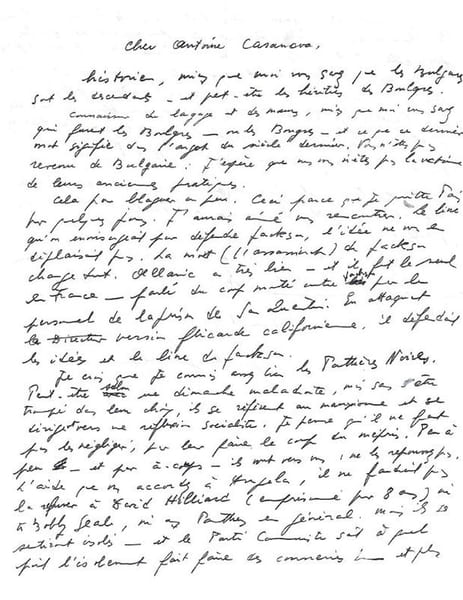 Cher Antoine Casanova,
historien, mieux que moi vous savez que les Bulgares
sont les descendants – et peut-être les héritiers des Boulgres.
Connaisseur du langage et des mœurs, mieux que moi vous savez
qui furent les Boulgres – ou les Bougres – et ce que ce dernier
mot signifie dans l'argot du siècle dernier. Vous n'êtes pas
revenu de Bulgarie. J'espère que vous n'êtes pas la victime
de leurs anciennes pratiques.
Cela pour blaguer un peu. Ceci parce que je quitte Paris
pour quelques jours. J'aurais aimé vous rencontrer. Le livre
qu'on envisageait pour défendre Jackson, l'idée ne vous en
déplaisait pas. La mort (l'assassinat) de Jackson
change tout. a très bien – et il fut le seul
en France – parlé du coup monté contre Jackson par le
personnel de la prison de San Quentin. En attaquant
le Directeur version flicarde californienne, il défendait
les idées et le livre de Jackson.
Je crois que je connais assez bien les Panthères Noires.
Peut-être selon une démarche maladroite, mais sans s'être
trompé dans leur choix, ils se réfèrent au marxisme et se
dirigent vers une réflexion socialiste. Je pense qu'il ne faut
pas les négliger, pas leur faire le coup du mépris. Peu à
peu – et par à-coups – ils vont vers vous, ne les repoussez pas.
L'aide que vous accordez à Angela, il ne faudrait pas
la refuser à David Hilliard (emprisonné pour 8 ans) ni
à Bobby Seale, ni aux Panthères en général. Mais ils se
sentiront isolés – et le Parti Communiste sait à quel
point l'isolement fait faire des conneries – et plus